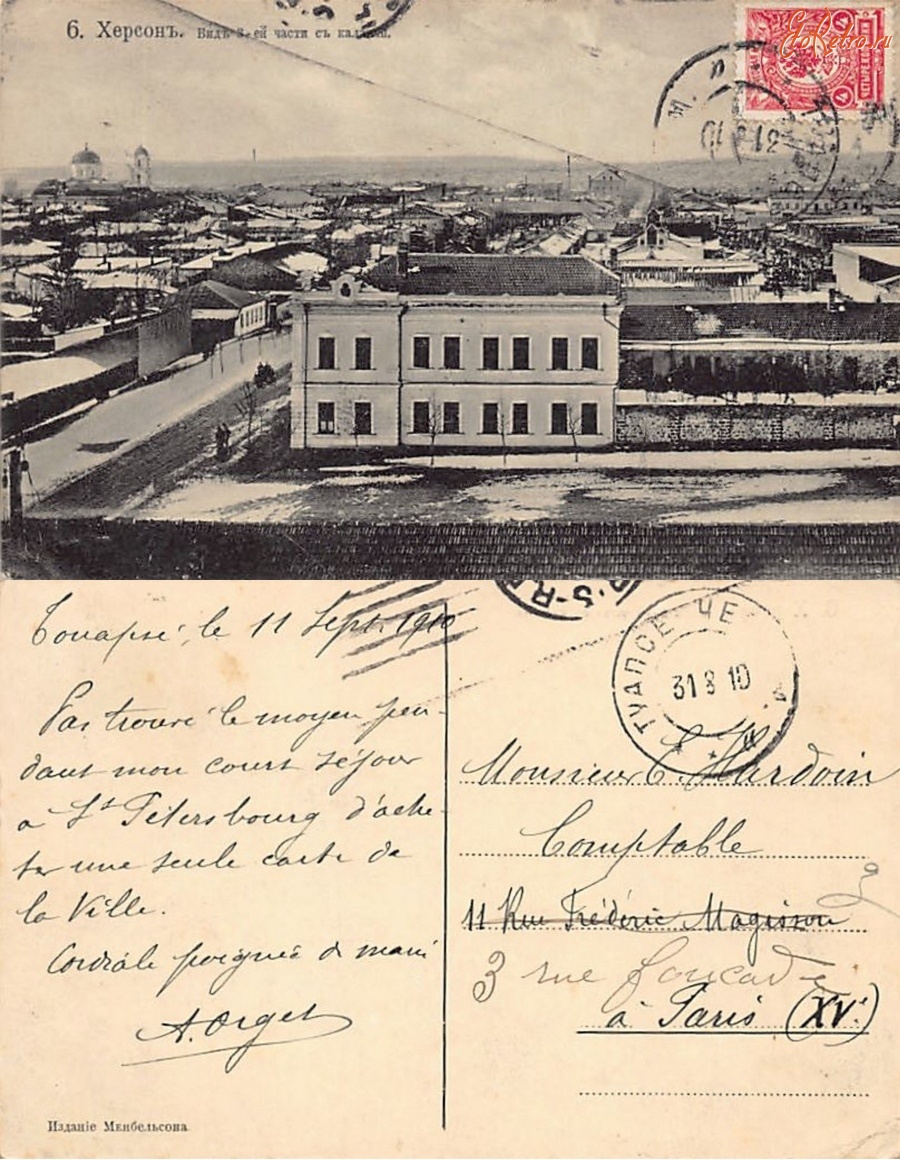 6. Херсонъ. Видъ 3-ей части съ каланчи.
4 4
ЧЕТЫРЕ КОП
GoRetro.ru
31 8 10
Touapsé, le 11 Sept. 1910
Pas trouvé le moyen pen-
dant mon court séjour
à St Pétersbourg d'ache-
ter une seule carte de
la Ville.
Cordiale poignée de main
A. Orget
Изданіе Менбельсона
ТУАПСЕ ЧЕ
31 8 10
Monsieur C. Hardoin
Comptable
11 Rue Frédéric Magisson
3 rue Foucade
à Paris (XVe)